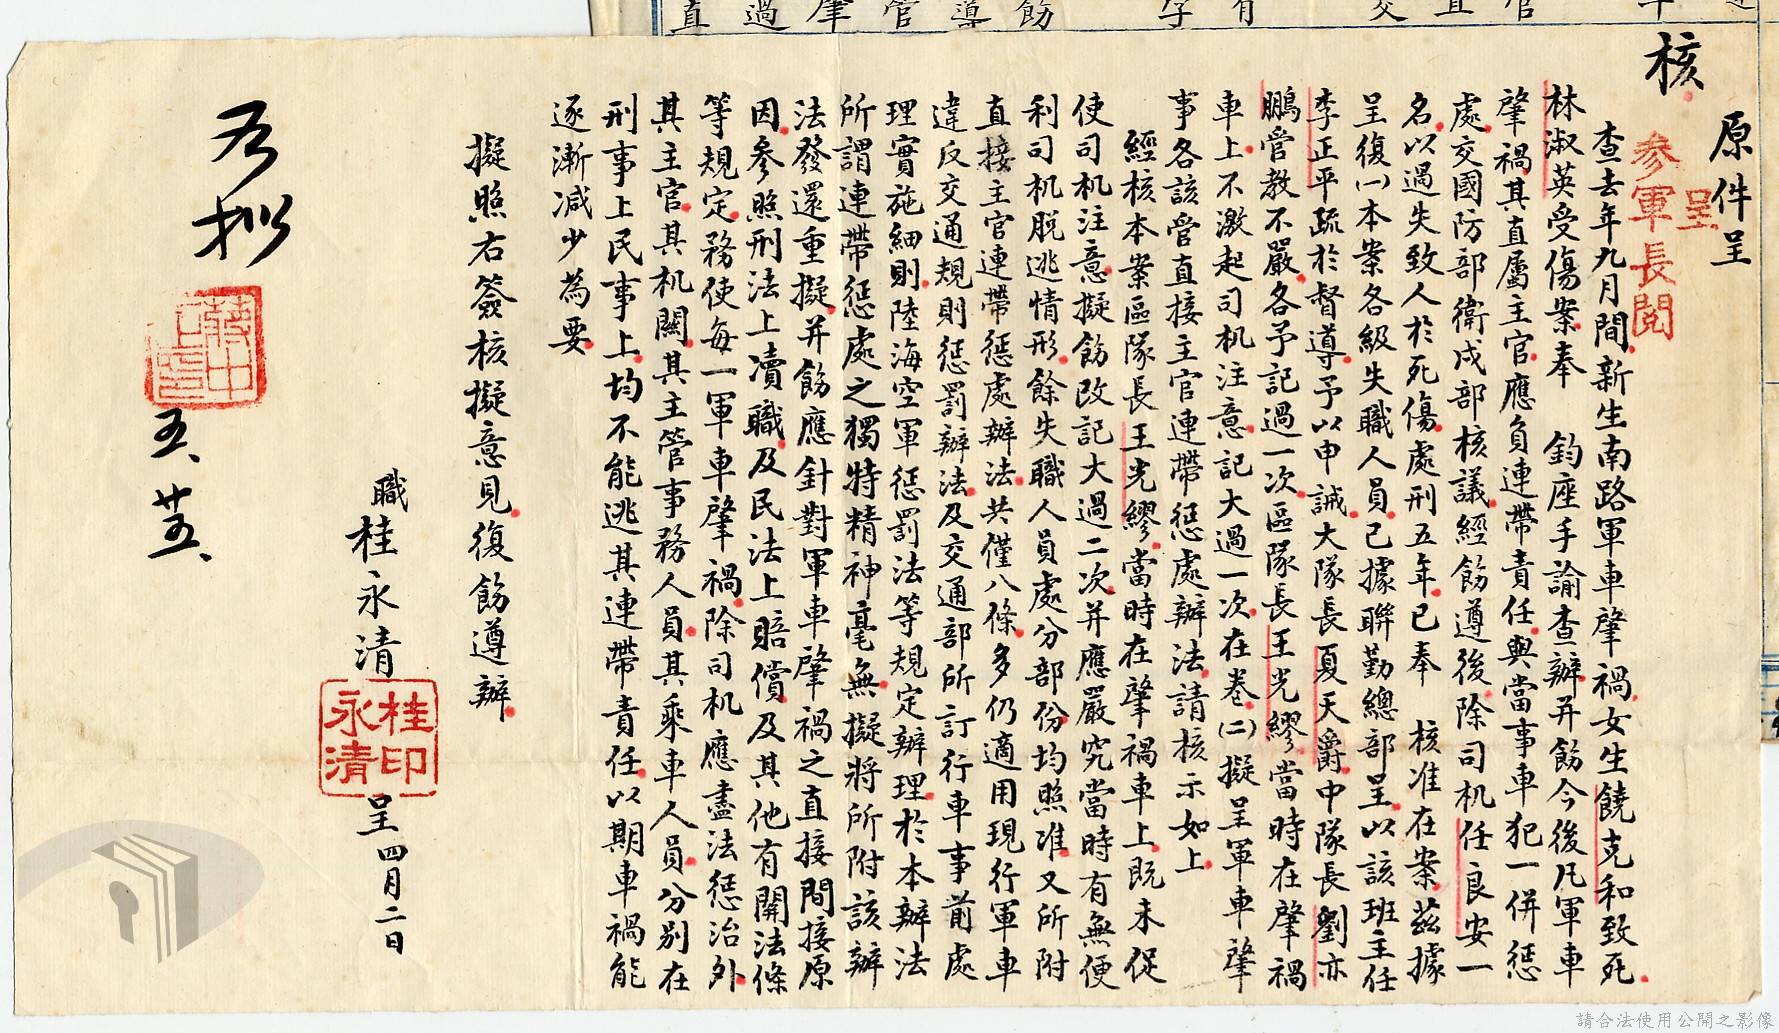 核
原件呈
呈
參軍長閱
查去年九月間新生南路軍車肇禍女生饒克和致死
林淑英受傷案奉 鈞座手諭查辦并飭今後凡軍車
肇禍其直屬主官應負連帶責任與當事車犯一併懲
處交國防部衛戍部核議經飭遵後除司机任良安一
名以過失致人於死傷處刑五年已奉 核准在案茲據
呈復(一)本案各級失職人員已據聯勤總部呈以該班主任
李正平疏於督導予以申誡大隊長夏天爵中隊長劉亦
鵬管教不嚴各予記過一次區隊長王光繆當時在肇禍
車上不激起司机注意記大過一次在卷(二)擬呈軍車肇
事各該管直接主官連帶懲處辦法請核示如上
經核本案區隊長王光繆當時在肇禍車上既未促
使司机注意擬飭改記大過二次并應嚴究當時有無便
利司机脫逃情形餘失職人員處分部份均照准又所附
直接主官連帶懲處辦法共僅八條多仍適用現行軍車
違反交通規則懲罰辦法及交通部所訂行車事前處
理實施細則陸海空軍懲罰法等規定辦理於本辦法
所謂連帶懲處之獨特精神毫無擬將所附該辦
法發還重擬并飭應針對軍車肇禍之直接間接原
因參照刑法上瀆職及民法上賠償及其他有關法條
等規定務使每一軍車肇禍除司机應盡法懲治外
其主官其机關其主管事務人員其乘車人員分別在
刑事上民事上均不能逃其連帶責任以期車禍能
逐漸減少為要
擬照右簽核擬意見復飭遵辦
職桂永清
桂永清印
呈四月二日
如擬
蔣中正印
五、廿五、
請合法使用公開之影像